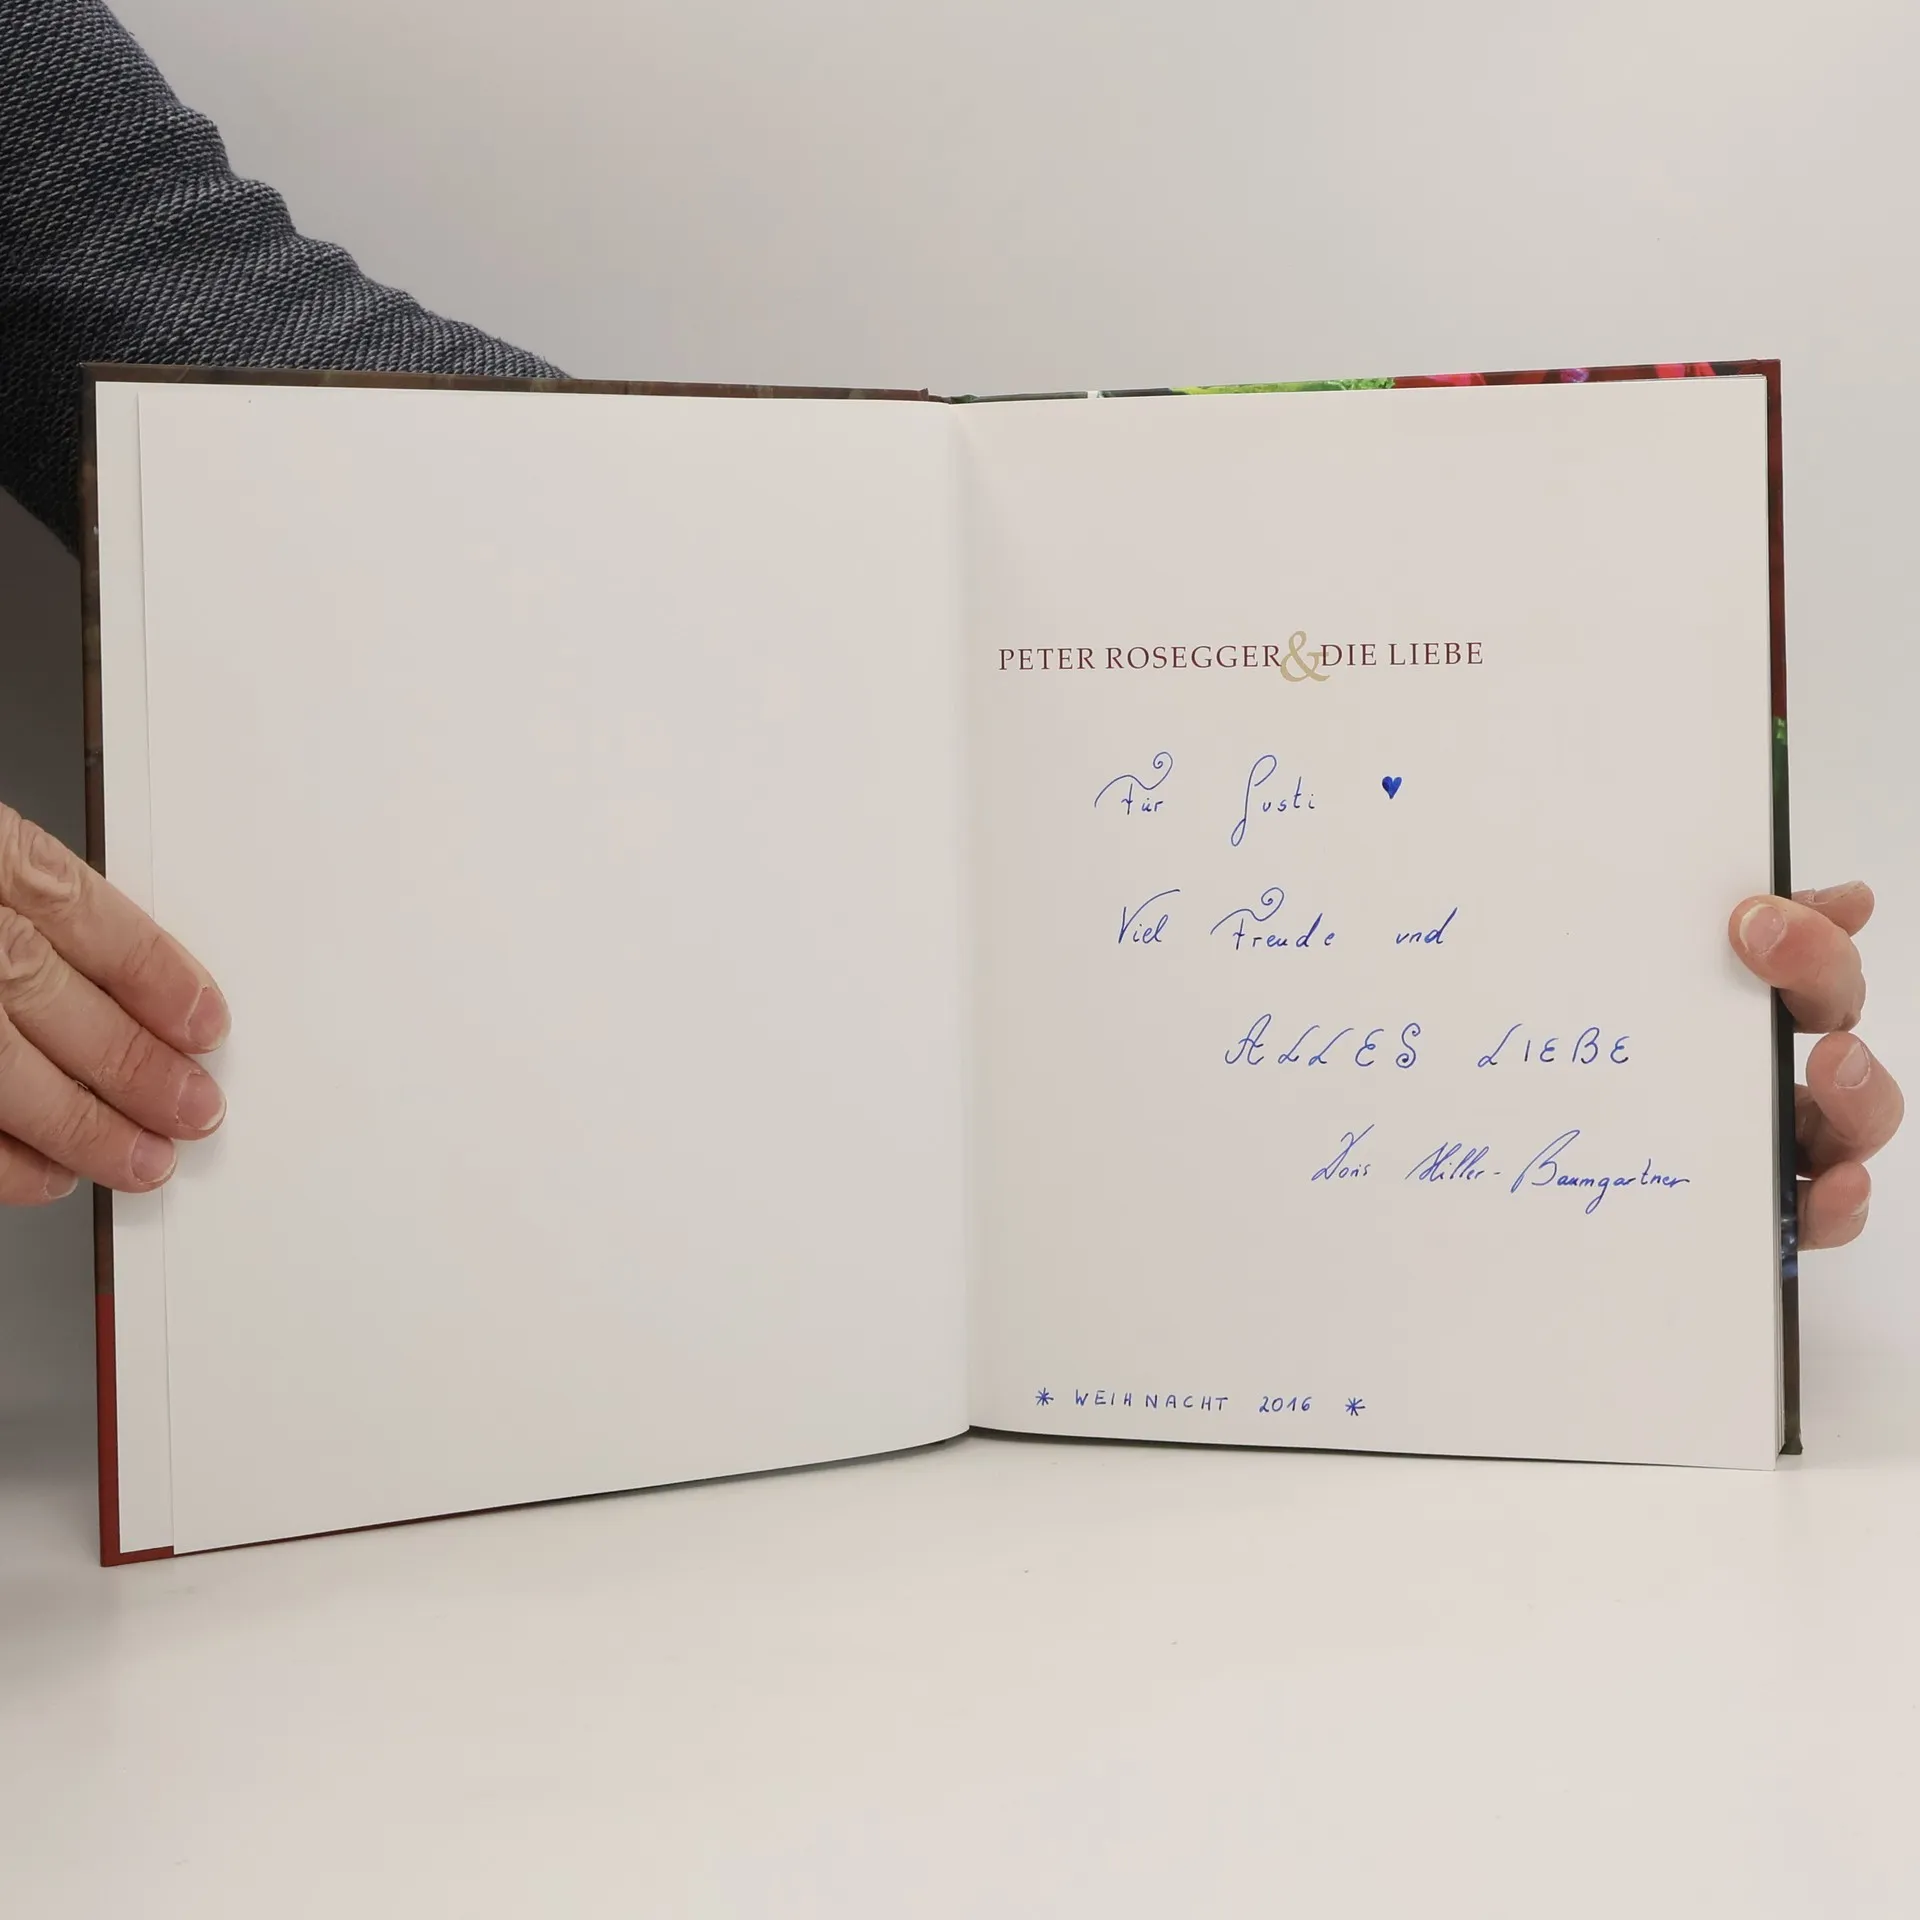 PETER ROSEGGER & DIE LIEBE
Für Gusti ♥
Viel Freude und
ALLES LIEBE
Doris Hiller-Baumgartner
* WEIHNACHT 2016 *